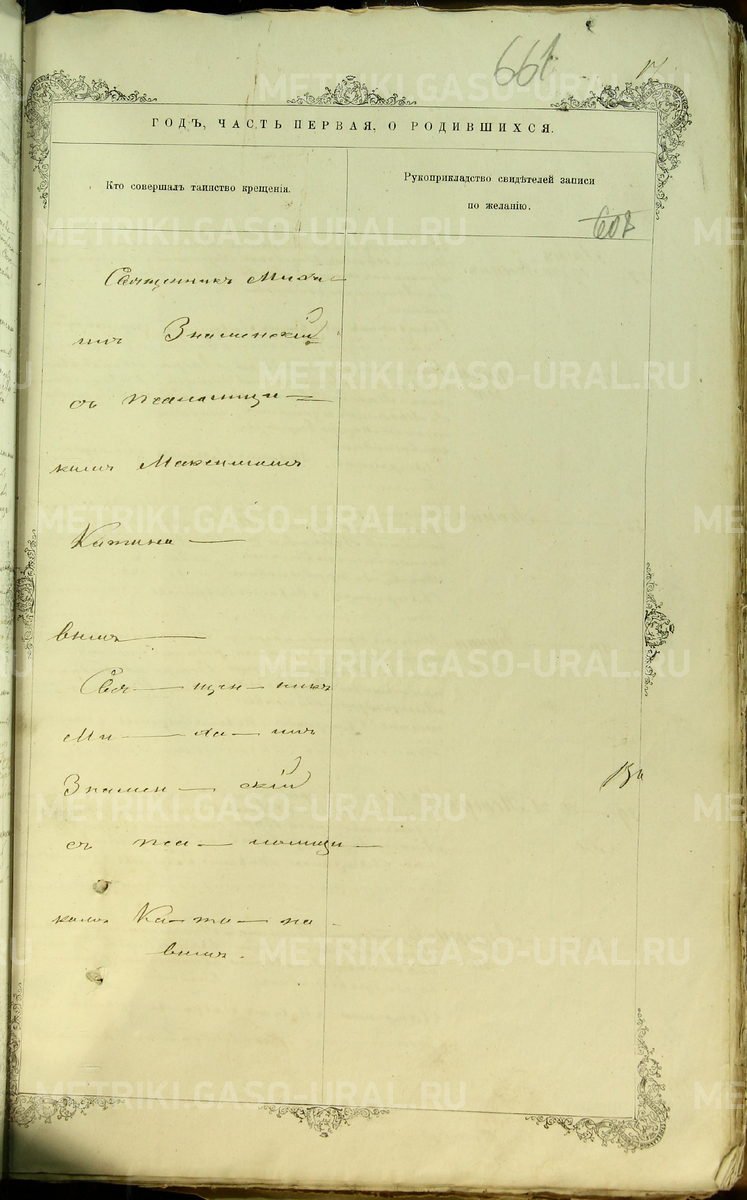 661
17
ГОДЪ, ЧАСТЬ ПЕРВАЯ, О РОДИВШИХСЯ.
Кто совершалъ таинство крещенія.
Рукоприкладство свидѣтелей записи
по желанію.
607
Священникъ Миха-
илъ Знаменскій
съ псаломщи-
комъ Максимомъ
Катана-
вымъ
Свя-щен-никъ
Ми-ха-илъ
Знамен-скій
съ пса-ломщи-
комъ Ка-та-на-
вымъ.
METRIKI.GASO-URAL.RU